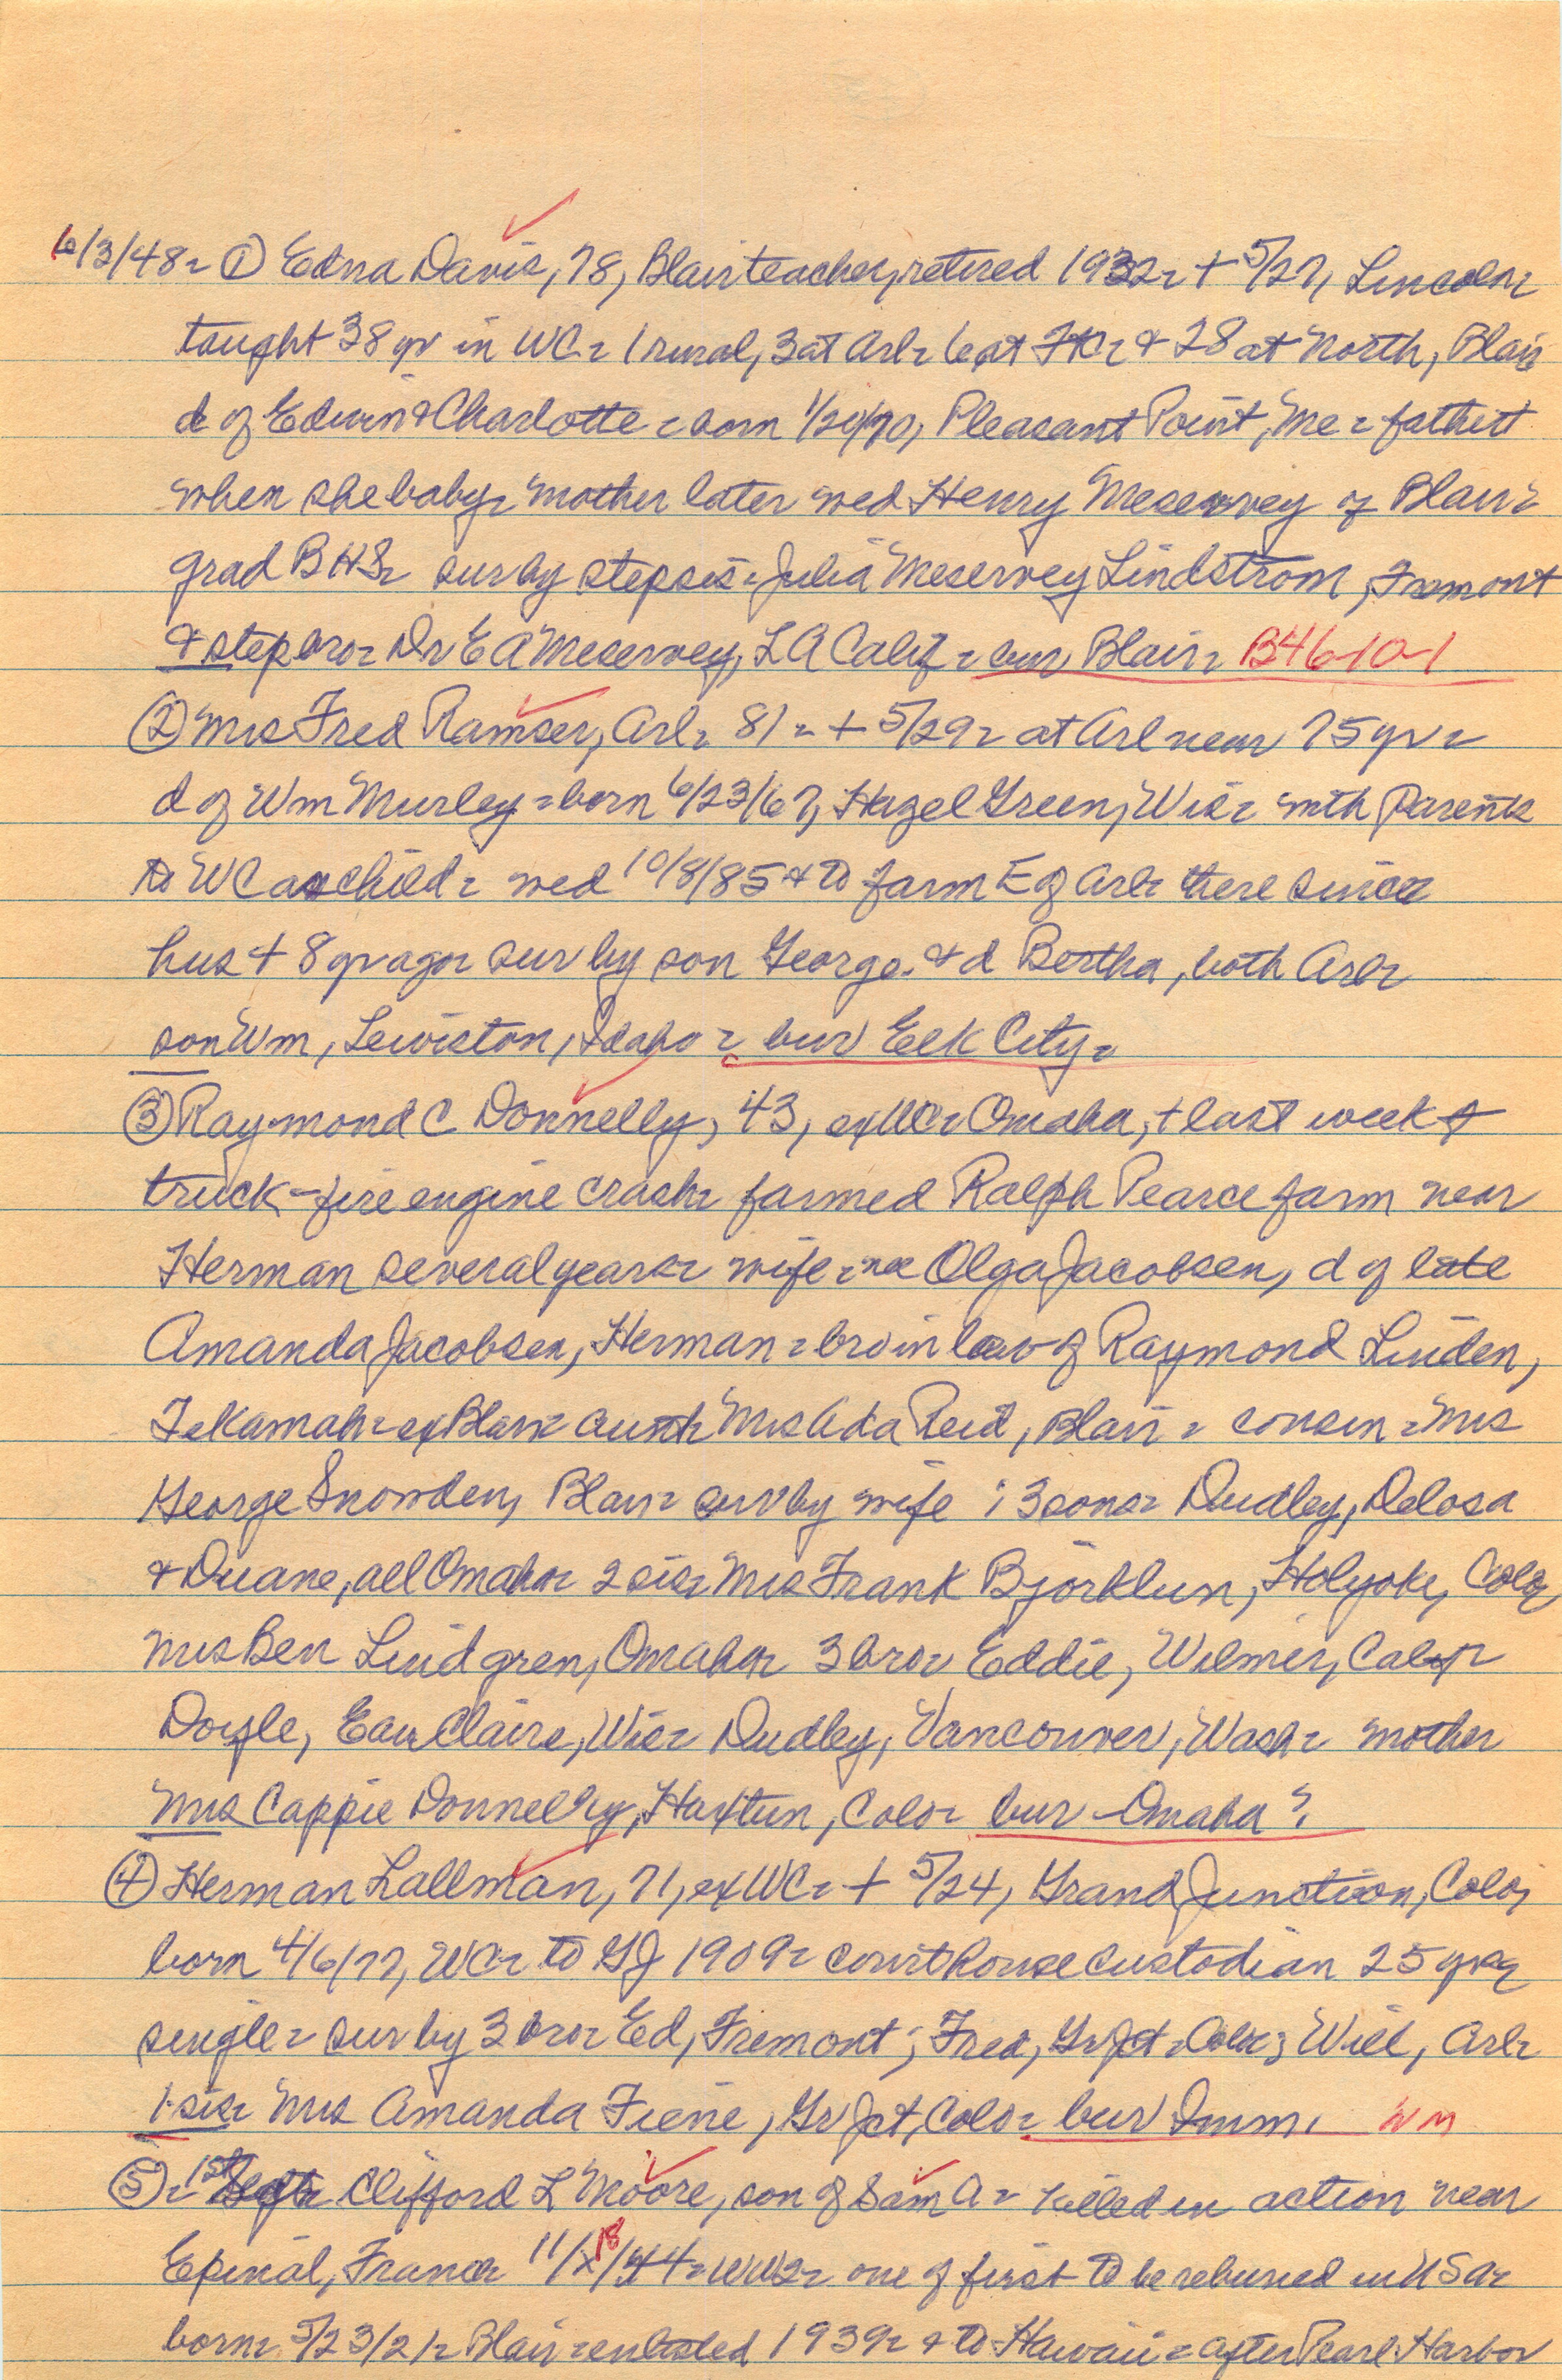 6/3/48 = ① Edna Davis, 78, Blair teacher, retired 1932 = + 5/27, Lincoln =
taught 38 yr in WC = 1 rural, 3 at Arl = 6 at FtC = & 28 at North, Blair
d of Edwin & Charlotte = born 1/20/70, Pleasant Point, Me = father +
when she baby = mother later wed Henry Meservey of Blair =
grad BHS = sur by stepsis = Julia Meservey Lindstrom, Fremont
& stepbro = Dr E A Meservey, LA Calif = bur Blair = B46-10-1
② Mrs Fred Ramser, Arl = 81 = + 5/29 = at Arl near 75 yr =
d of Wm Murley = born 6/23/67, Hazel Green, Wis = with parents
to WC as child = wed 10/8/85 & to farm E of Arl = there since =
hus + 8 yr ago = sur by son George & d Bertha, both Arl =
son Wm, Lewiston, Idaho = bur Elk City =
③ Raymond C Donnelly, 43, ex WC = Omaha, + last week
truck - fire engine crash = farmed Ralph Pearce farm near
Herman several years = wife = nee Olga Jacobsen, d of late
Amanda Jacobsen, Herman = bro in law of Raymond Linden,
Tekamah = ex Blair = aunt = Mrs Ada Reid, Blair = cousin = Mrs
George Snowden, Blair = sur by wife ; 3 sons = Dudley, Delosa
& Duane, all Omaha = 2 sis = Mrs Frank Bjorklun, Holyoke, Colo =
Mrs Ben Lindgren, Omaha = 3 bro = Eddie, Wilmer, Calif =
Doyle, Eau Claire, Wis = Dudley, Vancouver, Wash = mother
Mrs Cappie Donnelly, Haxtun, Colo = bur - Omaha?
④ Herman Lallman, 71, ex WC = + 5/24, Grand Junction, Colo,
born 4/6/77, WC = to GJ 1909 = courthouse custodian 25 yr =
single = sur by 3 bro = Ed, Fremont; Fred, Gr Jct = Colo; Will, Arl =
1 sis = Mrs Amanda Fiene, Gr Jct, Colo = bur Imm, WM
⑤ = 1st Sgt = Clifford L Moore, son of Sam A = killed in action near
Epinal, France 11/18/44 = WW2 = one of first to be reburied in USA =
born = 5/23/21 = Blair = enlisted 1939 = & to Hawaii = after Pearl Harbor